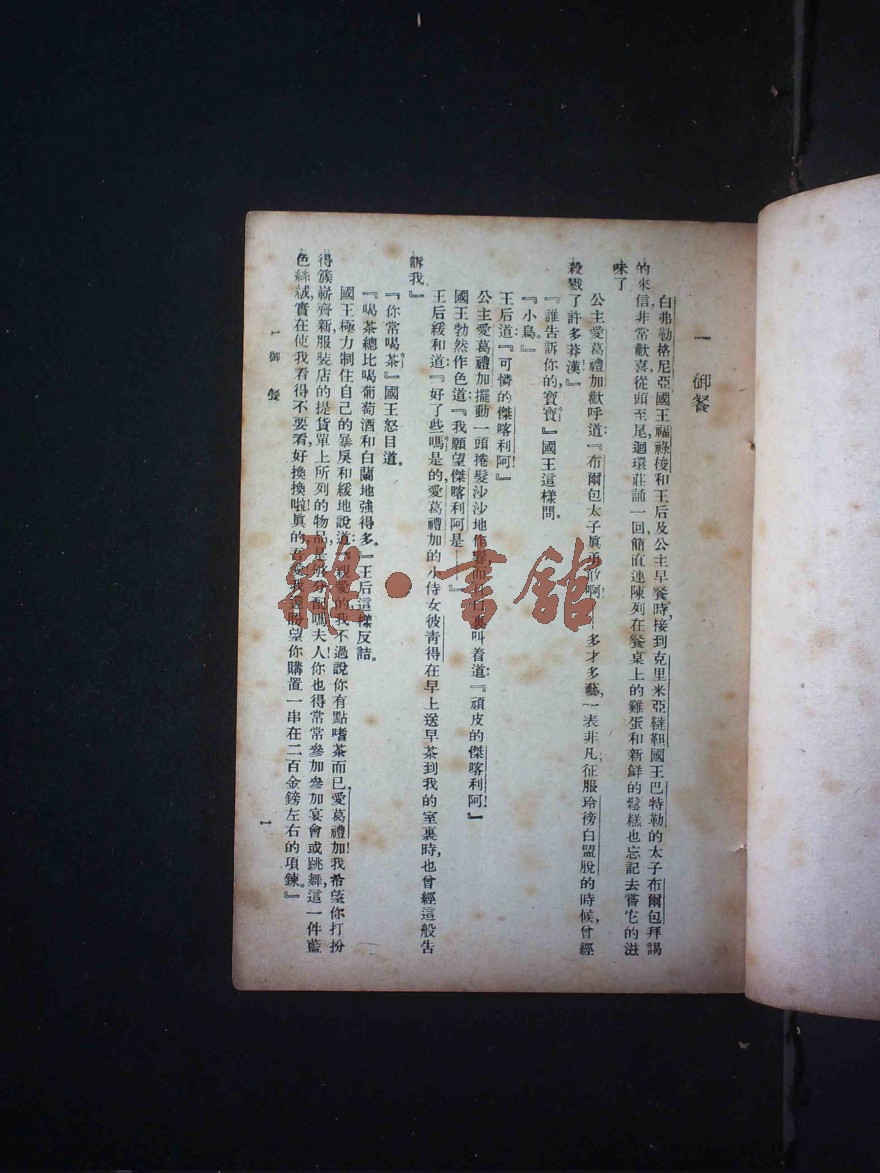 一 御餐
白弗勒格尼亞國王福祿梭和王后及公主早餐時,接到克里米亞韃靼國王巴特勒的太子布爾包拜謁
的來信,非常歡喜,從頭至尾,迴環莊誦一回,簡直連陳列在餐桌上的雞蛋和新鮮的鬆糕也忘記去嘗它的滋
味了。
公主愛葛禮加歡呼道:『布爾包太子眞勇敢啊!——多才多藝,一表非凡;征服玲徬白盟脫的時候,曾經
殺戮了許多莽漢!』
『誰告訴你的,寶寶?』國王這樣問。
『小鳥。』
王后道:『可憐的傑喀利阿!』
公主愛葛禮加擺動一頭捲髮沙沙地作聲,而叫着道:『頑皮的傑喀利阿!』
國王勃然作色道:『我願望傑喀利阿是——』
王后緩和道:『好了些嗎?是的,愛葛禮加的小侍女彼靑得在早上送早茶到我的室裏時,也曾經這般告
訴我。』
『你常喝茶。』國王怒目道。
『喝茶總比喝葡萄酒和白蘭地強得多。』王后這樣反詰。
國王極力制住自己的暴戾,和緩地說道:『親愛的,我不過說你有點嗜茶而已,愛葛禮加!我希望你打扮
得簇嶄齊新,服裝店的提貨單上所列的物品,是够分配嗎?夫人,你也得常常參加參加宴會或跳舞,這一件藍
色絲絨,實在使我看得不要看,好換換啦!眞的,吾愛,我還盼望你購置一串在二百金鎊左右的項鍊。』
一 御 餐
1
雜·書館